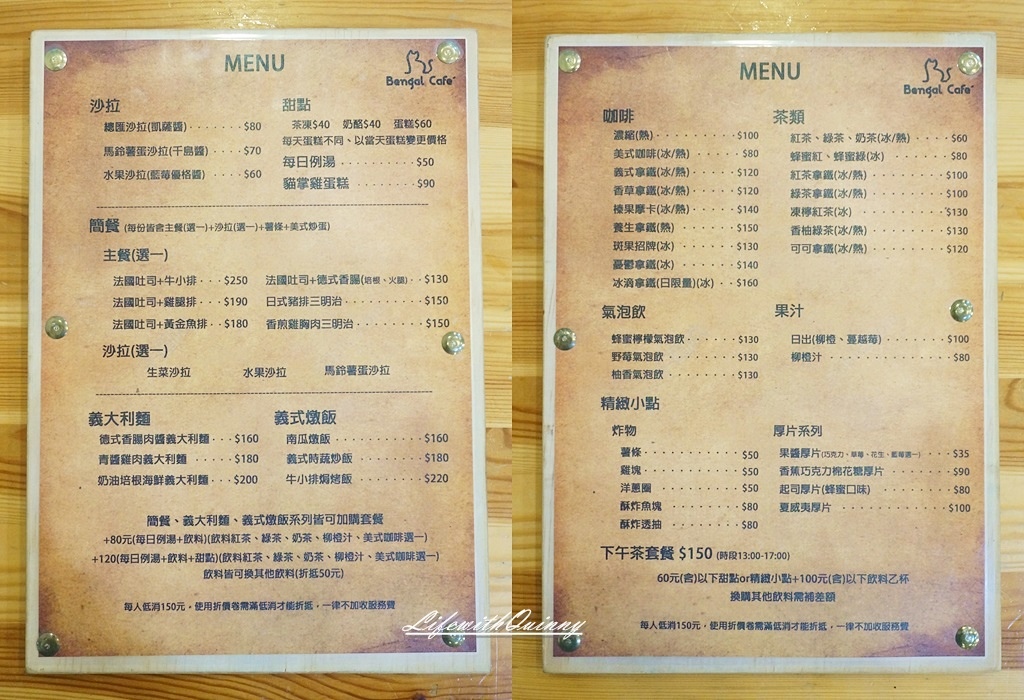 MENU
Bengal Cafe'
沙拉
總匯沙拉(凱薩醬)‧‧‧‧‧‧‧$80
馬鈴薯蛋沙拉(千島醬)‧‧‧‧‧$70
水果沙拉(藍莓優格醬)‧‧‧‧‧$60
甜點
茶凍$40 奶酪$40 蛋糕$60
每天蛋糕不同、以當天蛋糕變更價格
每日例湯‧‧‧‧‧‧‧‧$50
貓掌雞蛋糕‧‧‧‧‧‧‧‧$90
簡餐(每份皆含主餐(選一)+沙拉(選一)+薯條+美式炒蛋)
主餐(選一)
法國吐司+牛小排‧‧‧$250
法國吐司+雞腿排‧‧‧$190
法國吐司+黃金魚排‧‧$180
法國吐司+德式香腸(培根、火腿)‧‧$130
日式豬排三明治‧‧‧‧‧‧‧$150
香煎雞胸肉三明治‧‧‧‧‧‧$150
沙拉(選一)
生菜沙拉 水果沙拉 馬鈴薯蛋沙拉
義大利麵
德式香腸肉醬義大利麵‧‧‧$160
青醬雞肉義大利麵‧‧‧‧‧$180
奶油培根海鮮義大利麵‧‧‧$200
義式燉飯
南瓜燉飯‧‧‧‧‧‧‧‧$160
義式時蔬炒飯‧‧‧‧‧‧$180
牛小排焗烤飯‧‧‧‧‧‧$220
簡餐、義大利麵、義式燉飯系列皆可加購套餐
+80元(每日例湯+飲料)(飲料紅茶、綠茶、奶茶、柳橙汁、美式咖啡選一)
+120(每日例湯+飲料+甜點)(飲料紅茶、綠茶、奶茶、柳橙汁、美式咖啡選一)
飲料皆可換其他飲料(折抵50元)
每人低消150元，使用折價卷需滿低消才能折抵，一律不加收服務費
MENU
Bengal Cafe'
咖啡
濃縮(熱)‧‧‧‧‧‧‧‧$100
美式咖啡(冰/熱)‧‧‧‧‧‧$80
義式拿鐵(冰/熱)‧‧‧‧‧$120
香草拿鐵(冰/熱)‧‧‧‧‧$120
榛果摩卡(冰/熱)‧‧‧‧‧$140
養生拿鐵(熱)‧‧‧‧‧‧$150
斑果招牌(冰)‧‧‧‧‧‧$130
憂鬱拿鐵(冰)‧‧‧‧‧‧$140
冰滴拿鐵(日限量)(冰)‧‧‧$160
茶類
紅茶、綠茶、奶茶(冰/熱)‧‧‧‧$60
蜂蜜紅、蜂蜜綠(冰)‧‧‧‧‧‧$80
紅茶拿鐵(冰/熱)‧‧‧‧‧‧‧$100
綠茶拿鐵(冰/熱)‧‧‧‧‧‧‧$100
凍檸紅茶(冰)‧‧‧‧‧‧‧‧$130
香柚綠茶(冰/熱)‧‧‧‧‧‧‧$130
可可拿鐵(冰/熱)‧‧‧‧‧‧‧$120
氣泡飲
蜂蜜檸檬氣泡飲‧‧‧‧‧$130
野莓氣泡飲‧‧‧‧‧‧‧$130
柚香氣泡飲‧‧‧‧‧‧‧$130
果汁
日出(柳橙、蔓越莓)‧‧‧‧‧‧$100
柳橙汁‧‧‧‧‧‧‧‧‧‧‧$80
精緻小點
炸物
薯條‧‧‧‧‧‧‧‧‧$50
雞塊‧‧‧‧‧‧‧‧‧$50
洋蔥圈‧‧‧‧‧‧‧‧$50
酥炸魚塊‧‧‧‧‧‧‧$80
酥炸透抽‧‧‧‧‧‧‧$80
厚片系列
果醬厚片(巧克力、草莓、花生、藍莓選一)‧‧‧$35
香蕉巧克力棉花糖厚片‧‧‧‧‧$90
起司厚片(蜂蜜口味)‧‧‧‧‧‧$80
夏威夷厚片‧‧‧‧‧‧‧‧‧$100
下午茶套餐 $150 (時段13:00-17:00)
60元(含)以下甜點or精緻小點+100元(含)以下飲料乙杯
換購其他飲料需補差額
每人低消150元，使用折價卷需滿低消才能折抵，一律不加收服務費
LifewithQuinny